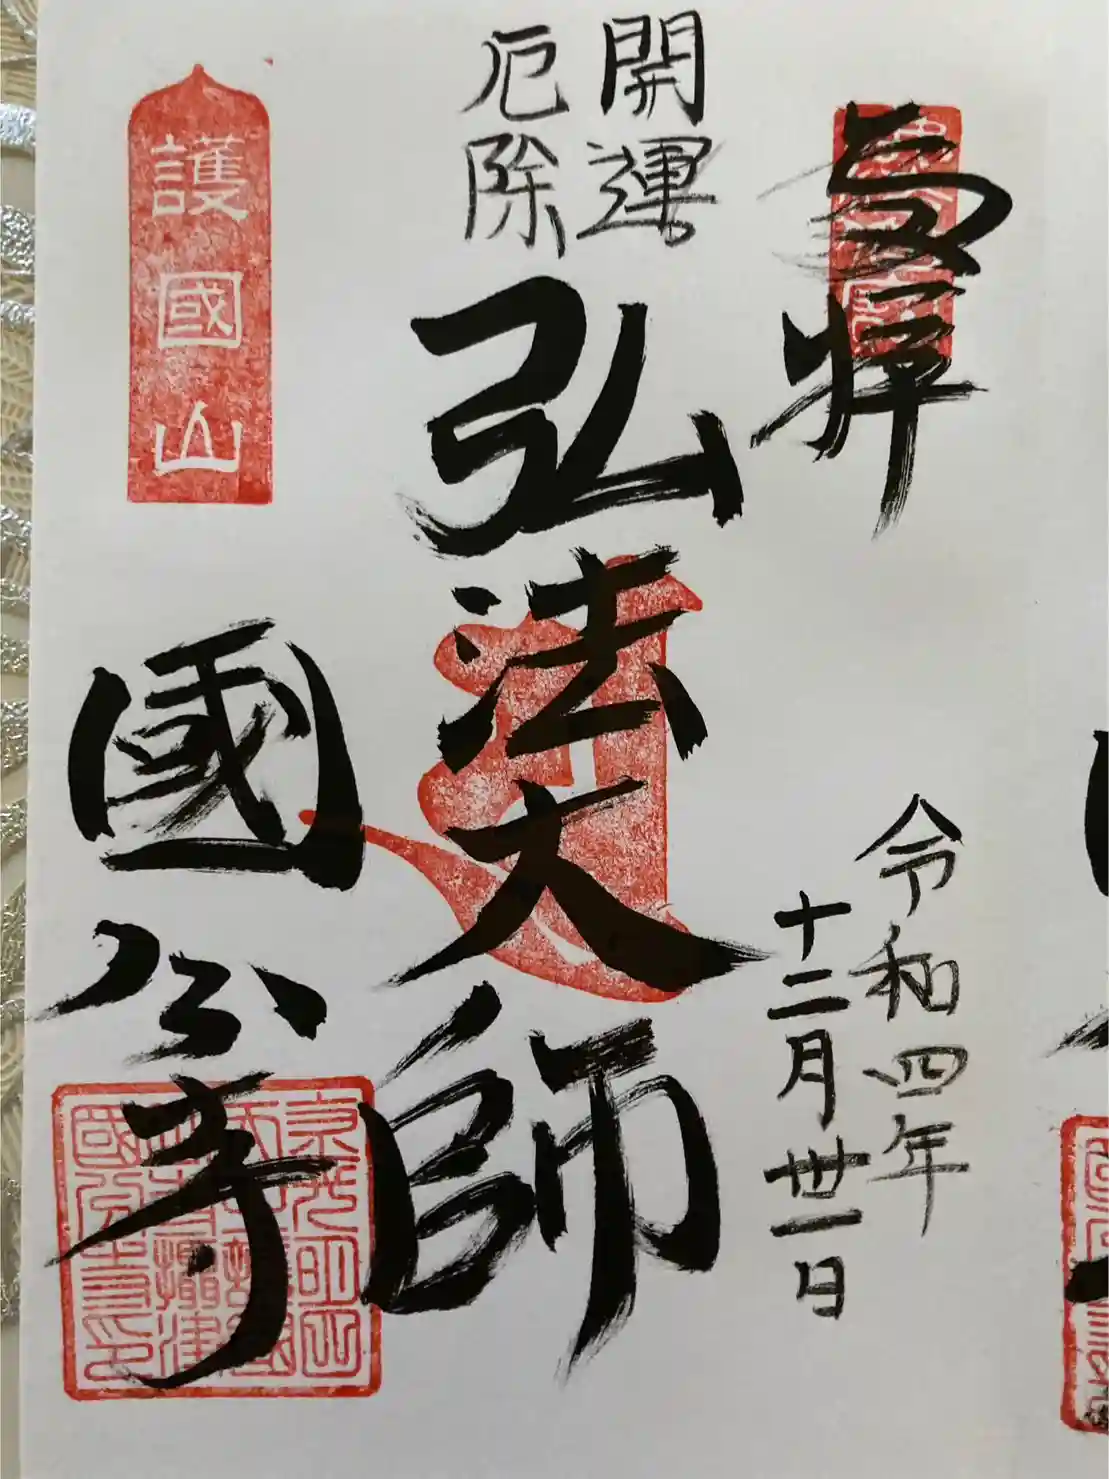 奉拝
令和四年
十二月卅一日
開運
厄除
弘法大師
護國山
國分寺